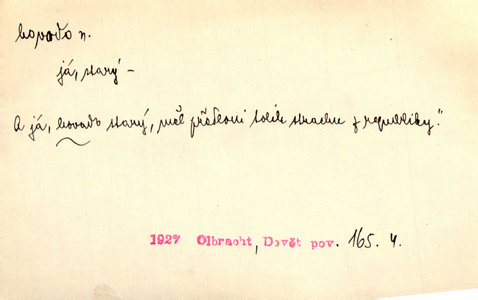 hovado n.
já, starý –
A já, hovado starý, měl přátconi tolik strachu z republiky."
1927 Olbracht, Devět pov. 165. 4.